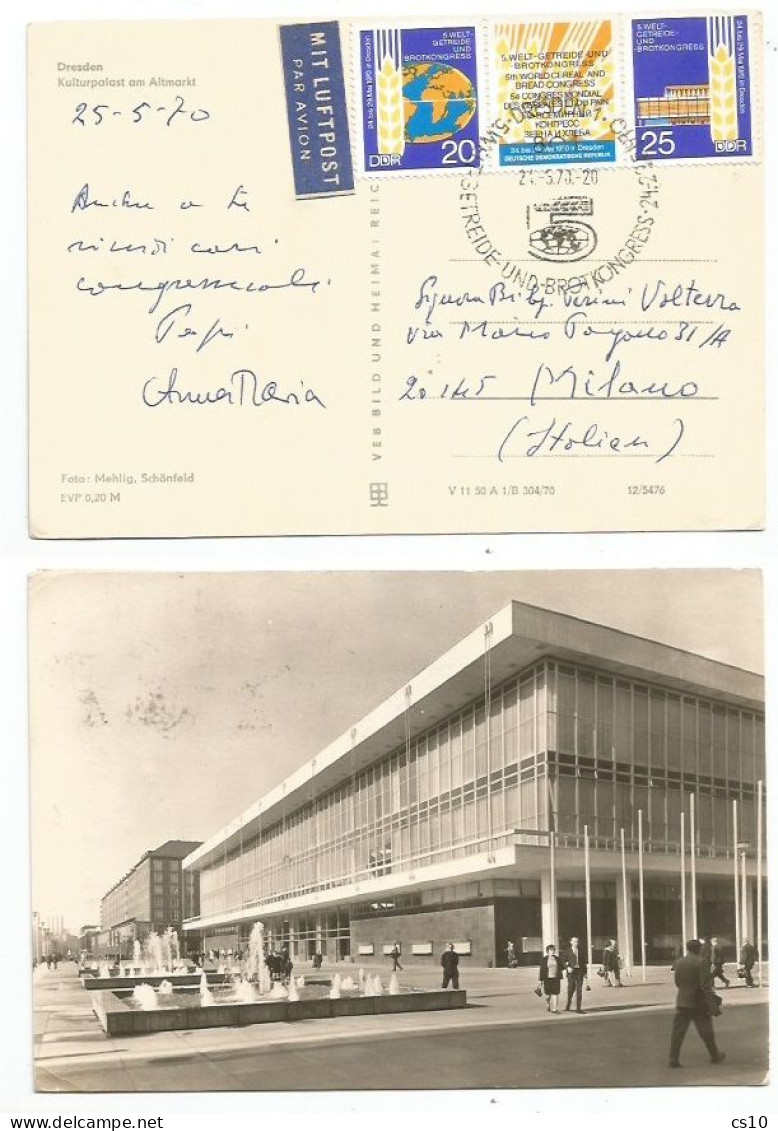 Dresden
Kulturpalast am Altmarkt
25-5-70
MIT LUFTPOST
PAR AVION
24. bis 29. Mai 1970 in Dresden
5. WELT-
GETREIDE-
UND
BROTKONGRESS
DDR 20
5. WELT-GETREIDE-UND
BROTKONGRESS
5th WORLD CEREAL AND
BREAD CONGRESS
5e CONGRES MONDIAL
DES CEREALES ET DU PAIN
5-Й ВСЕМИРНЫЙ
КОНГРЕСС
ЗЕРНА И ХЛЕБА
24. bis 29. Mai 1970 in Dresden
DEUTSCHE DEMOKRATISCHE REPUBLIK
5. WELT-
GETREIDE-
UND
BROTKONGRESS
24. bis 29. Mai 1970 in Dresden
DDR 25
5. WELT-GETREIDE-UND-BROTKONGRESS
5
Anche a te
ricordi cari
congressuali
AnnaMaria
VEB BILD UND HEIMAT REIC
Signora
Volterra
via Marco 31/A
20145 Milano
(Italien)
Foto: Mehlig, Schönfeld
EVP 0,20 M
V 11 50 A 1/B 304/70
12/5476
cs10